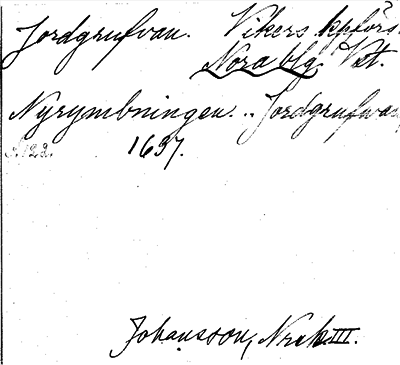 Jordgrufvan. Vikers kpförs.
Nora blg. Vstm.
Nyrymbningen. .. Jordgrufvan
s. 122. 1697.
Johansson, Nrak III.